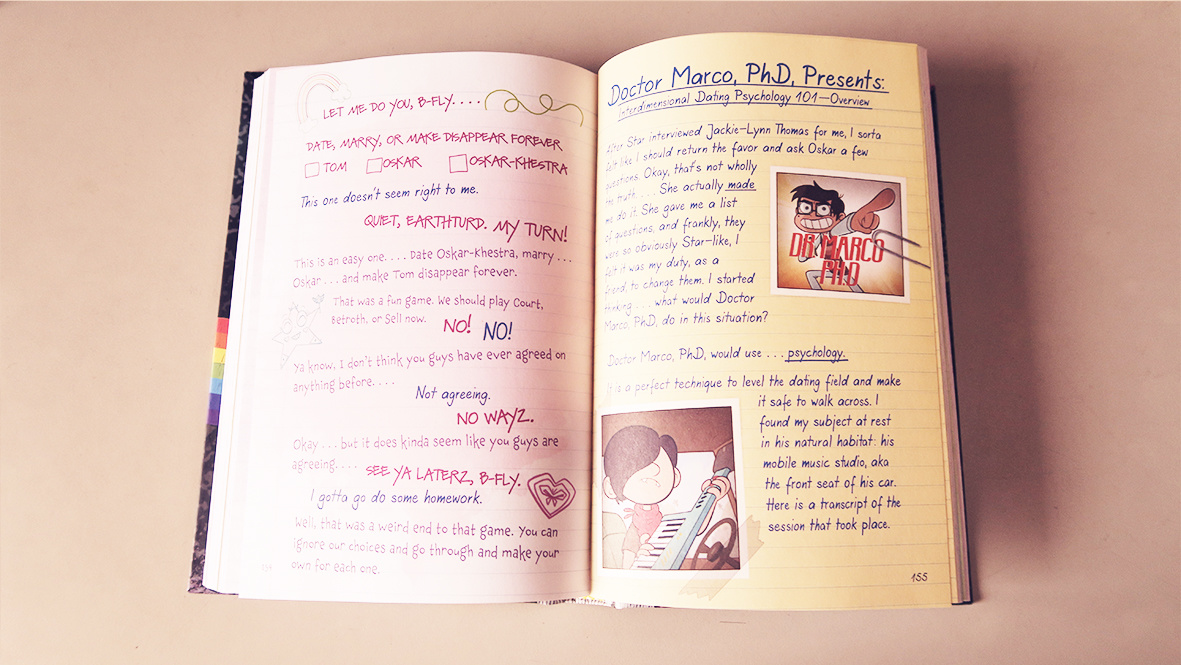 LET ME DO YOU, B-FLY. . . .
DATE, MARRY, OR MAKE DISAPPEAR FOREVER
TOM OSKAR OSKAR-KHESTRA
This one doesn't seem right to me.
QUIET, EARTHTURD. MY TURN!
This is an easy one. . . . Date Oskar-Khestra, marry . . .
Oskar . . . and make Tom disappear forever.
That was a fun game. We should play Court,
Betroth, or Sell now.
NO! NO!
Ya know, I don't think you guys have ever agreed on
anything before. . . .
Not agreeing.
NO WAYZ.
Okay . . . but it does kinda seem like you guys are
agreeing. . . .
SEE YA LATERZ, B-FLY.
I gotta go do some homework.
Well, that was a weird end to that game. You can
ignore our choices and go through and make your
own for each one.
Doctor Marco, PhD, Presents:
Interdimensional Dating Psychology 101—Overview
After Star interviewed Jackie-Lynn Thomas for me, I sorta
felt like I should return the favor and ask Oskar a few
questions. Okay, that's not wholly
the truth. . . . She actually made
me do it. She gave me a list
of questions, and frankly, they
were so obviously Star-like, I
felt it was my duty, as a
friend, to change them. I started
thinking . . . what would Doctor
Marco, PhD, do in this situation?
DR MARCO
PhD
Doctor Marco, PhD, would use . . . psychology.
It is a perfect technique to level the dating field and make
it safe to walk across. I
found my subject at rest
in his natural habitat: his
mobile music studio, aka
the front seat of his car.
Here is a transcript of the
session that took place.
155